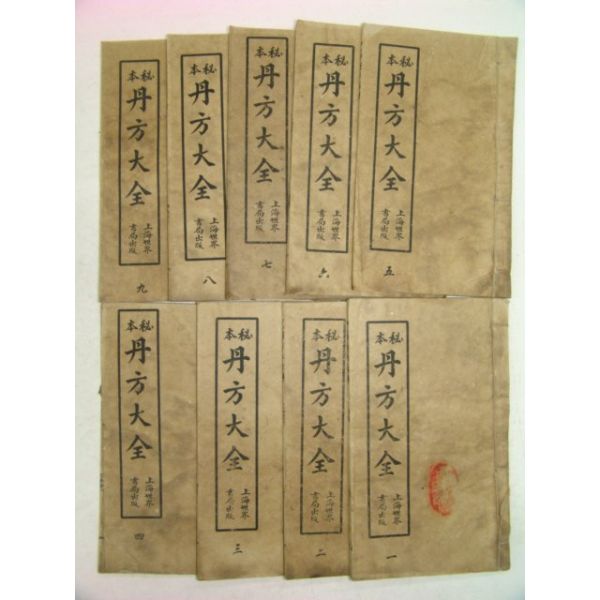 秘本
丹方大全
上海世界
書局出版
五
秘本
丹方大全
上海世界
書局出版
六
秘本
丹方大全
上海世界
書局出版
七
秘本
丹方大全
上海世界
書局出版
八
秘本
丹方大全
上海世界
書局出版
九
秘本
丹方大全
上海世界
書局出版
一
秘本
丹方大全
上海世界
書局出版
二
秘本
丹方大全
上海世界
書局出版
三
秘本
丹方大全
上海世界
書局出版
四